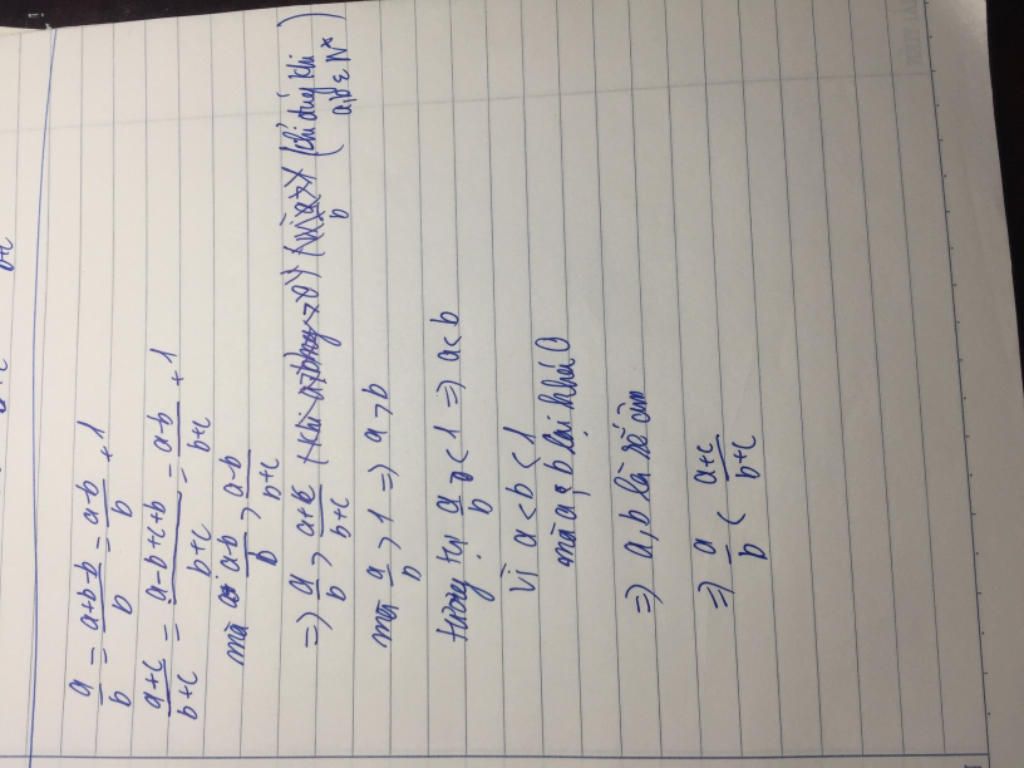 a/b = a+b-b/b = a-b/b + 1
a+c/b+c = a-b+c+b/b+c = a-b/b+c + 1
mà a-b/b > a-b/b+c
=> a/b > a+c/b+c (chỉ đúng khi a,b ∈ N*)
mà a/b > 1 => a > b
Tương tự a/b < 1 => a < b
Vì a < b < 1
mà a, b lại khác 0
=> a, b là số âm
=> a/b < a+c/b+c